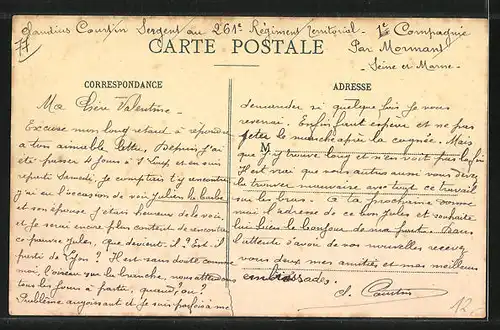 Claudius Courtin Sergent au 261e Régiment Territorial - 1e Compagnie
77
CARTE POSTALE
Par Mormant
Seine et Marne -
CORRESPONDANCE
ADRESSE
M
Ma Chère Valentine -
Excuse mon long retard à répondre
à ton aimable lettre, Depuis j'ai
été passer 4 jours à et en suis
reparti Samedi, Je comptais t'y rencontrer
j'ai eu l'occasion de voir Julien
et son épouse j'étais heureux de le voir,
et Je serai encore plus content de rencontrer
ce pauvre Jules, que devient-il ? Est-il
parti de Lyon ? Il est sans doute comme
moi, l'oiseau sur la branche, nous attendons
tous les jours à partir, quand, où ?
Problème angoissant et Je suis parfois à me
demander si quelque fois Je vous
reverrai. Enfin faut espérer et ne pas
jeter le manche après la cognée. Mais
que j'y trouve long et n'en voit pas la fin
Il est vrai que vous autres aussi vous devez
la trouver mauvaise avec tout ce travail
sur les bras. A ta prochaine donne
moi l'adresse de ce bon Jules et souhaite
lui bien le bonjour de ma part. Dans
l'attente d'avoir de vos nouvelles recevez
vous deux mes amitiés et mes meilleurs
embrassades,
C. Courtin
12.-